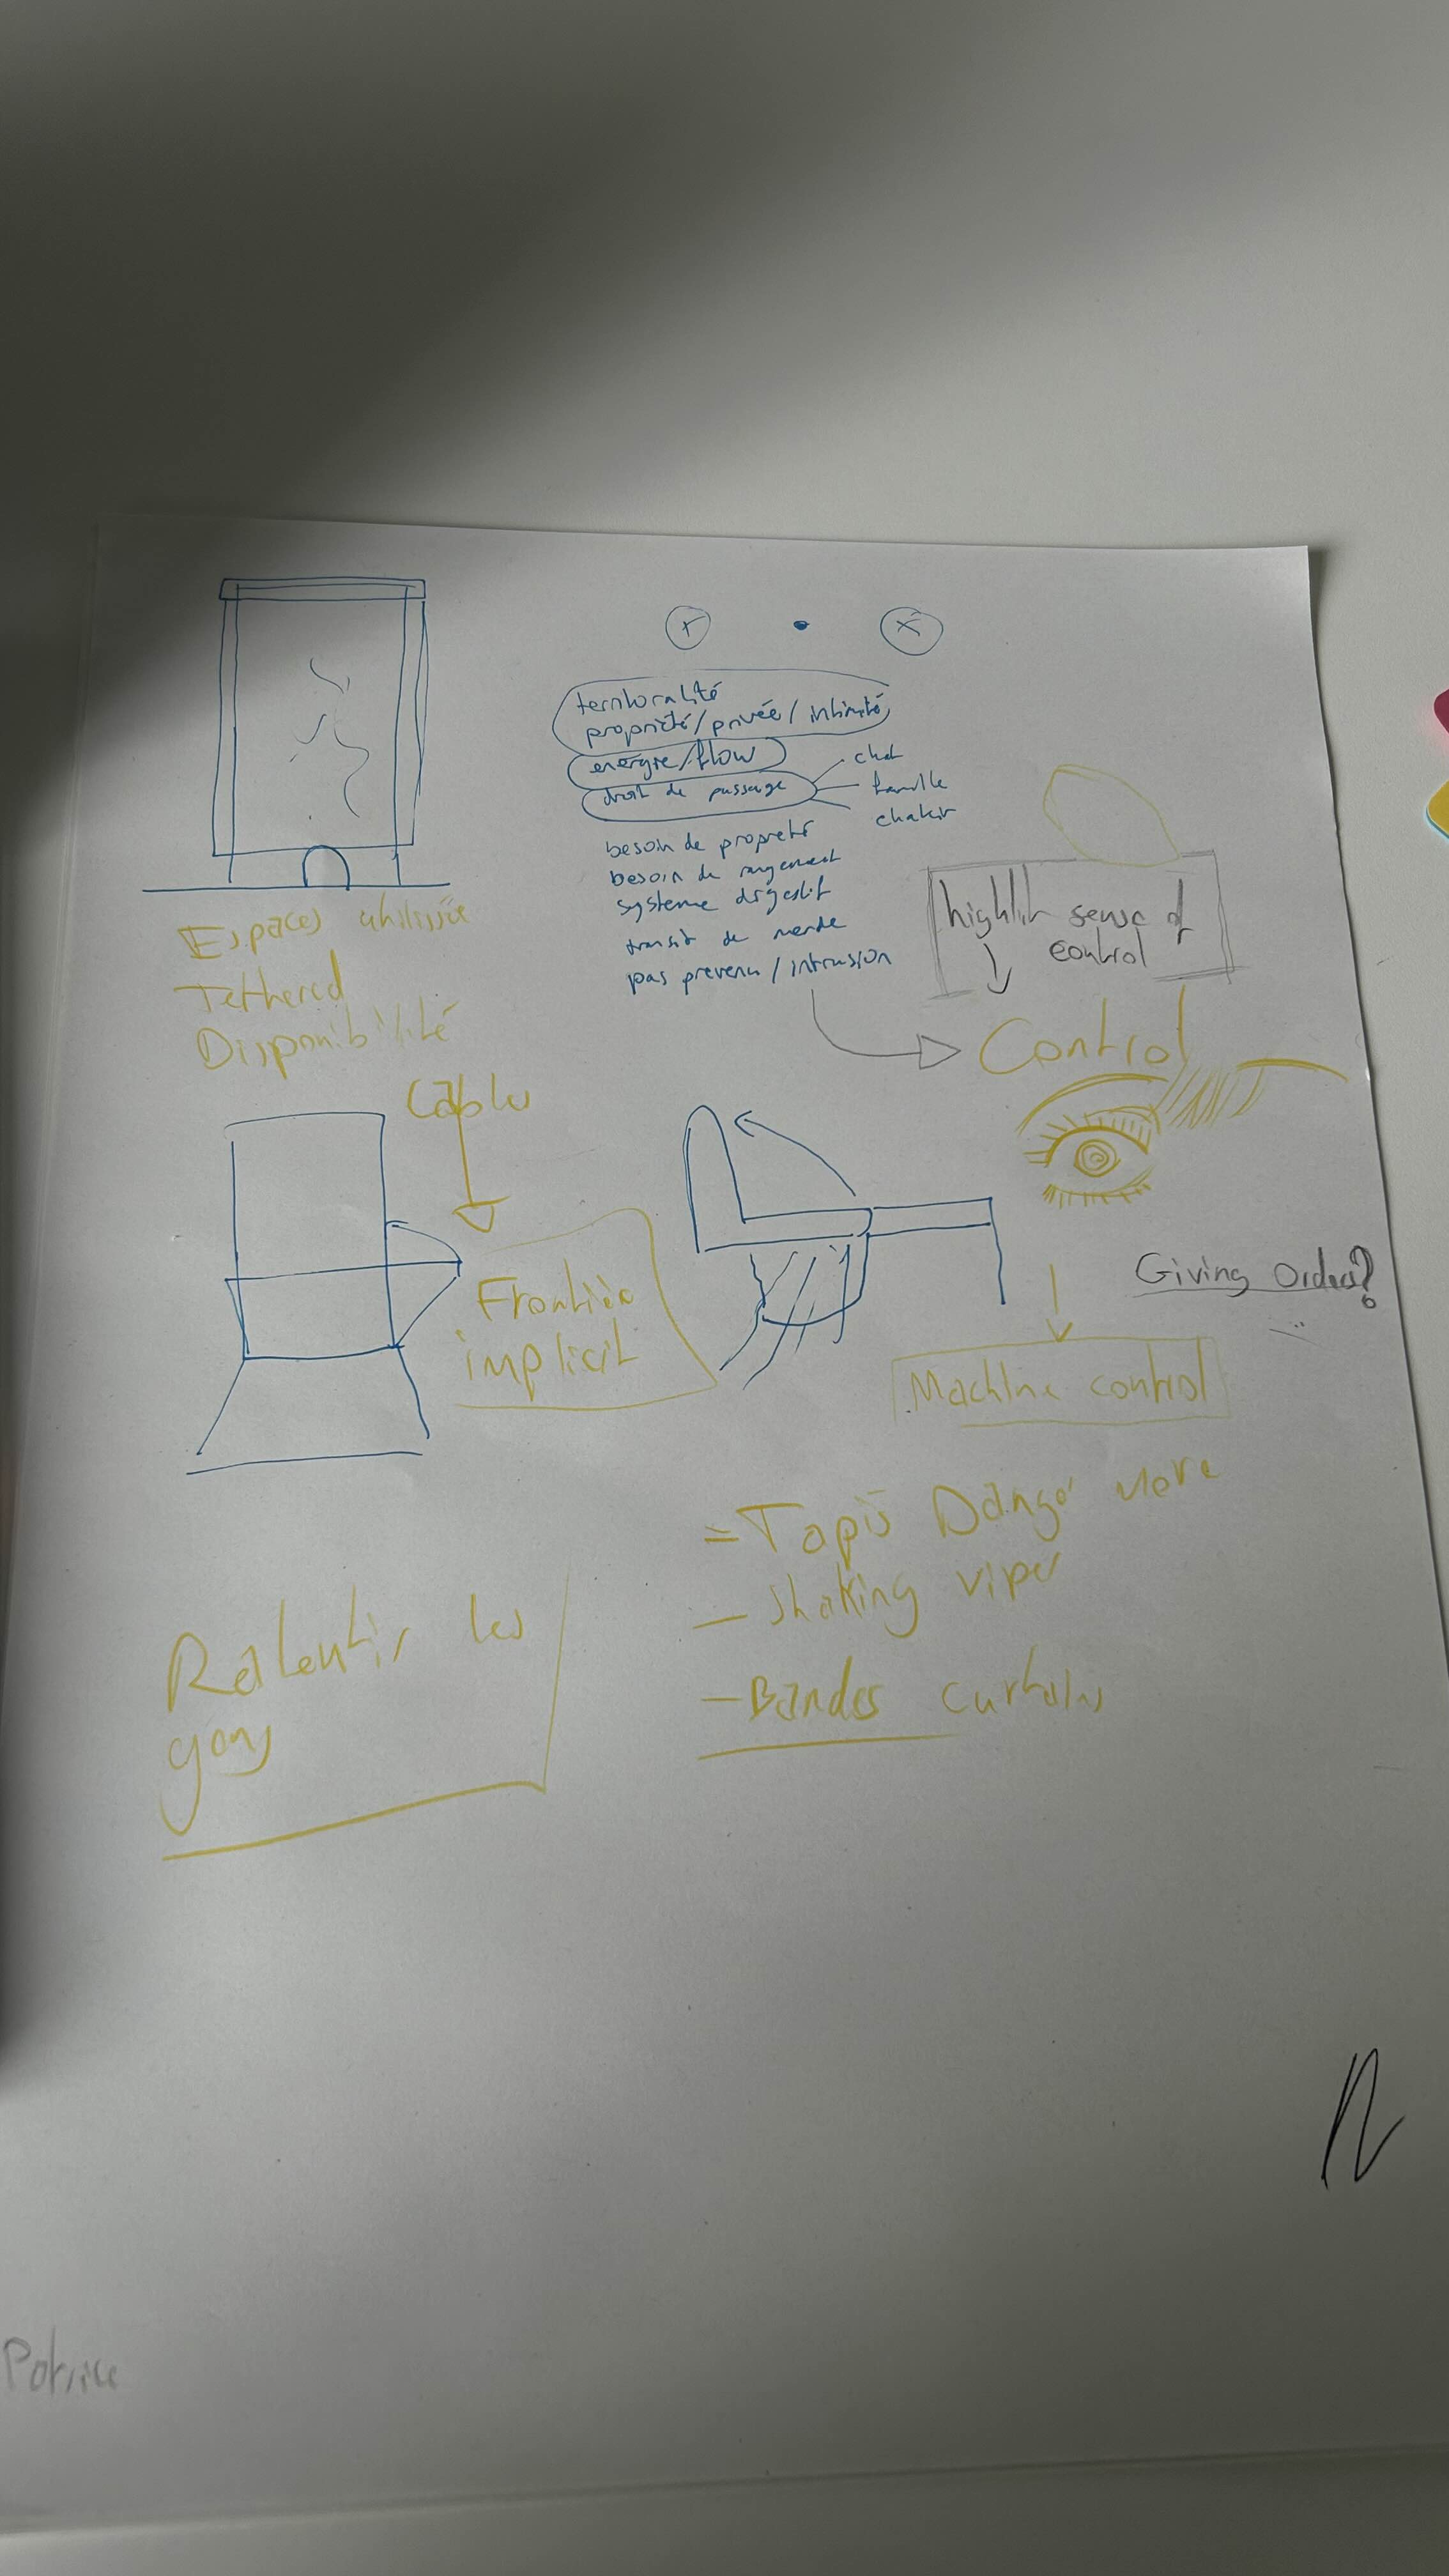 territoralité
propriété/privée/intimité
energie/flow
droit de passage
chat
famille
chaker
besoin de propreté
besoin de rangement
système digestif
transit de merde
pas prevenu/intrusion
highlih sense of
control
Espaces utilisée
Tethered
Disponibilité
Control
Cables
Frontière
implicit
Giving Orders?
Machine control
= Tapis Dange
- Shaking viper
- Bandes curtains
Ralentir les
gens